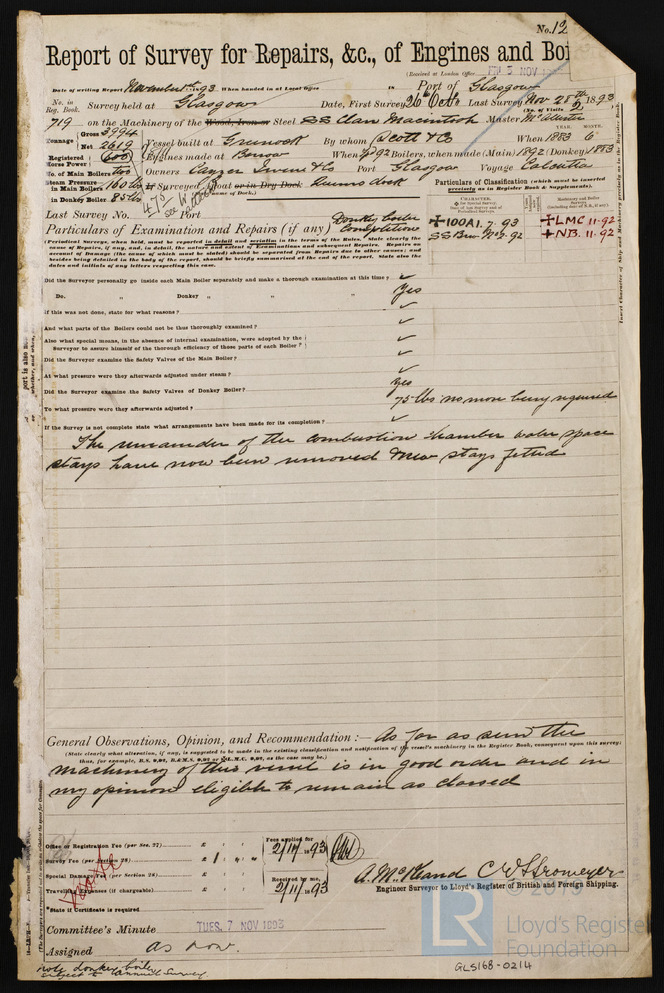 No. 12
Report of Survey for Repairs, &c., of Engines and Boi
(Received at London Office 5 NOV 18
Date of writing Report November 1st 1893 When handed in at Local Office in Port of Glasgow
No. in Reg. Book. Survey held at Glasgow Date, First Survey 26 Oct Last Survey Nov 1893
(No. of Visits 2
719 on the Machinery of the Wood, Iron or Steel SS Clan Macintosh Master McAllister
Tonnage Gross 3994 Net 2619 Vessel built at Greenock By whom Scott & Co When 1883 YEAR. MONTH. 6
Registered Horse Power 600 Engines made at When 1892 Boilers, when made (Main) 1892 (Donkey) 1883
No. of Main Boilers two Owners Cayzer Irvine & Co Port Glasgow Voyage Calcutta
Steam Pressure in Main Boilers 160 lbs If Surveyed Afloat or in Dry Dock Queens dock
(State name of Dock.)
in Donkey Boiler 85 lbs
Particulars of Classification (which must be inserted precisely as in Register Book & Supplements).
Last Survey No. Port
475 see
CHARACTER,
Machinery and Boiler Surveys
✠100A1. 7. 93
SS No 2. 92
✠LMC 11.92
✠N.B. 11.92
Particulars of Examination and Repairs (if any) Donkey boiler Completions
(Periodical Surveys, when held, must be reported in detail and seriatim in the terms of the Rules. State clearly the cause of Repairs, if any, and, in detail, the nature and extent of Examinations and consequent Repairs. Repairs on account of Damage (the cause of which must be stated) should be separated from Repairs due to other causes; and besides being detailed in the body of the report, should be briefly summarised at the end of the report. State also the dates and initials of any letters respecting this case.
Did the Surveyor personally go inside each Main Boiler separately and make a thorough examination at this time? ✓
Do. „ Donkey „ „ „ Yes
If this was not done, state for what reasons? ✓
And what parts of the Boilers could not be thoroughly examined? ✓
Also what special means, in the absence of internal examination, were adopted by the Surveyor to assure himself of the thorough efficiency of those parts of each Boiler? ✓
Did the Surveyor examine the Safety Valves of the Main Boiler? ✓
At what pressure were they afterwards adjusted under steam? ✓
Did the Surveyor examine the Safety Valves of Donkey Boiler? Yes
To what pressure were they afterwards adjusted? 75 lbs no more being required
If the Survey is not complete state what arrangements have been made for its completion? ✓
The remainder of the combustion chamber water space
stays have now been removed & new stays fitted
General Observations, Opinion, and Recommendation:— As far as seen the
(State clearly what alteration, if any, is suggested to be made in the existing classification and notification of the vessel's machinery in the Register Book, consequent upon this survey;
thus, for example, B.S. 9,92, B.&M.S. 9,92 or ✠L.M.C. 9,92, as the case may be.)
machinery of this vessel is in good order and in
my opinion eligible to remain as classed
Office or Registration Fee (per Sec. 27) £
Survey Fee (per Section 28) £ 1
Special Damage Fee (per Section 28) £
Travelling Expenses (if chargeable) £
*State if Certificate is required
Fees applied for 2/11/1893
Received by me, 2/11/1893
C E Stromeyer
Engineer Surveyor to Lloyd's Register of British and Foreign Shipping.
Committee's Minute TUES. 7 NOV 1893
Assigned as now.
note donkey boiler
subject to annual survey
LR
© 2019
Lloyd's Register
Foundation
GLS168-0214